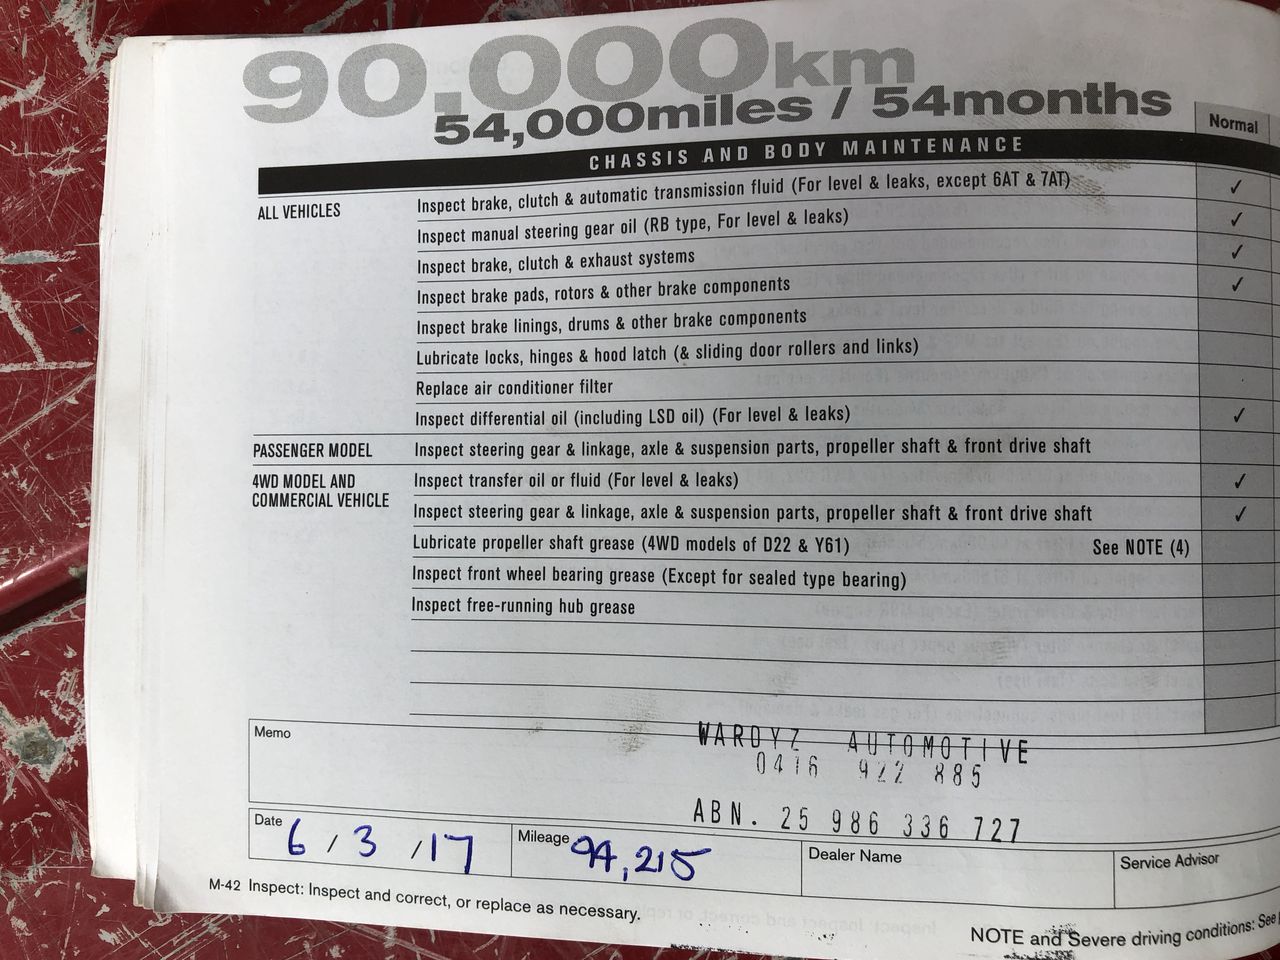 90,000km
54,000miles / 54months
Normal
CHASSIS AND BODY MAINTENANCE
ALL VEHICLES
Inspect brake, clutch & automatic transmission fluid (For level & leaks, except 6AT & 7AT) ✓
Inspect manual steering gear oil (RB type, For level & leaks) ✓
Inspect brake, clutch & exhaust systems ✓
Inspect brake pads, rotors & other brake components ✓
Inspect brake linings, drums & other brake components
Lubricate locks, hinges & hood latch (& sliding door rollers and links)
Replace air conditioner filter
Inspect differential oil (including LSD oil) (For level & leaks) ✓
PASSENGER MODEL Inspect steering gear & linkage, axle & suspension parts, propeller shaft & front drive shaft
4WD MODEL AND
COMMERCIAL VEHICLE
Inspect transfer oil or fluid (For level & leaks) ✓
Inspect steering gear & linkage, axle & suspension parts, propeller shaft & front drive shaft ✓
Lubricate propeller shaft grease (4WD models of D22 & Y61) See NOTE (4)
Inspect front wheel bearing grease (Except for sealed type bearing)
Inspect free-running hub grease
Memo
WARDYZ AUTOMOTIVE
0416 922 885
ABN. 25 986 336 727
Date 6/3/17
Mileage 94,215
Dealer Name
Service Advisor
M-42 Inspect: Inspect and correct, or replace as necessary.
NOTE and Severe driving conditions: See